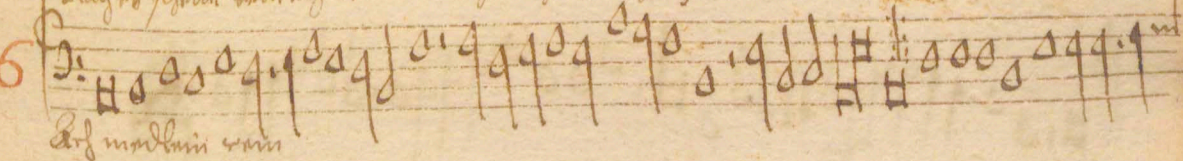 6
Ach medlein rein